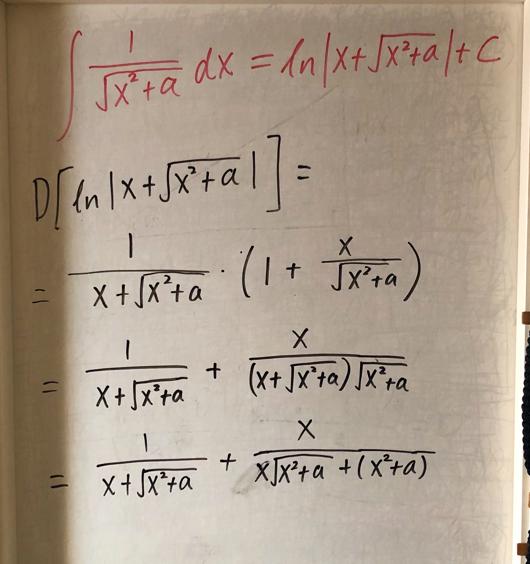 ∫ 1/√(x²+a) dx = ln|x+√(x²+a)|+C
D[ln|x+√(x²+a)|] =
= 1/(x+√(x²+a)) · (1 + x/√(x²+a))
= 1/(x+√(x²+a)) + x/((x+√(x²+a))√(x²+a))
= 1/(x+√(x²+a)) + x/(x√(x²+a) + (x²+a))